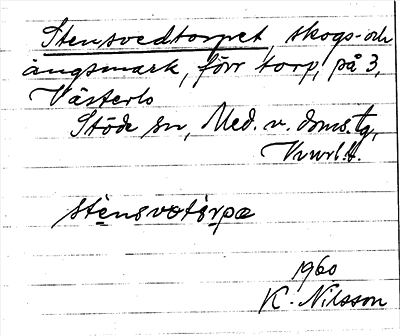 Stensvedtorpet, skogs- och
ängsmark, förr torp, på 3,
Västerlo
Stöde sn, Med. v. doms.tg,
Vnrl. H.
stensvotsrpœ
1960
K. Nilsson